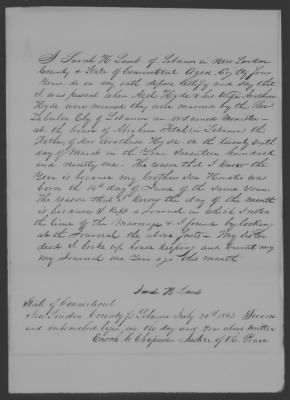 I Sarah H Lamb of Lebanon in New London
County & State of Connecticut Aged Eighty four
Years do on my oath depose Certify and say that
I was present when Hyde & his wife
Hyde were married they were married by the Rev
Ely of Lebanon an ordained Minister
at the house of Abraham in Lebanon the
Father of Mrs Hyde on the twenty
day of March in the Year Seventeen hundred
and ninety one. The reason that I know the
Year is because my brothers Son was
born the day of June of the same Year.
The reason that I know the day of the month
is because I kept a Journal in which I noted
the time of the Marriage & I found by looking
at the Journal the above facts - My Sister
died I broke up house keeping and burnt
my Journal one Year ago this month
Sarah H Lamb
State of Connecticut
New London County ss Lebanon July 20th 1843 Sworn
and subscribed before me the day and Year above written
Enoch C. Chapman Justice of the Peace